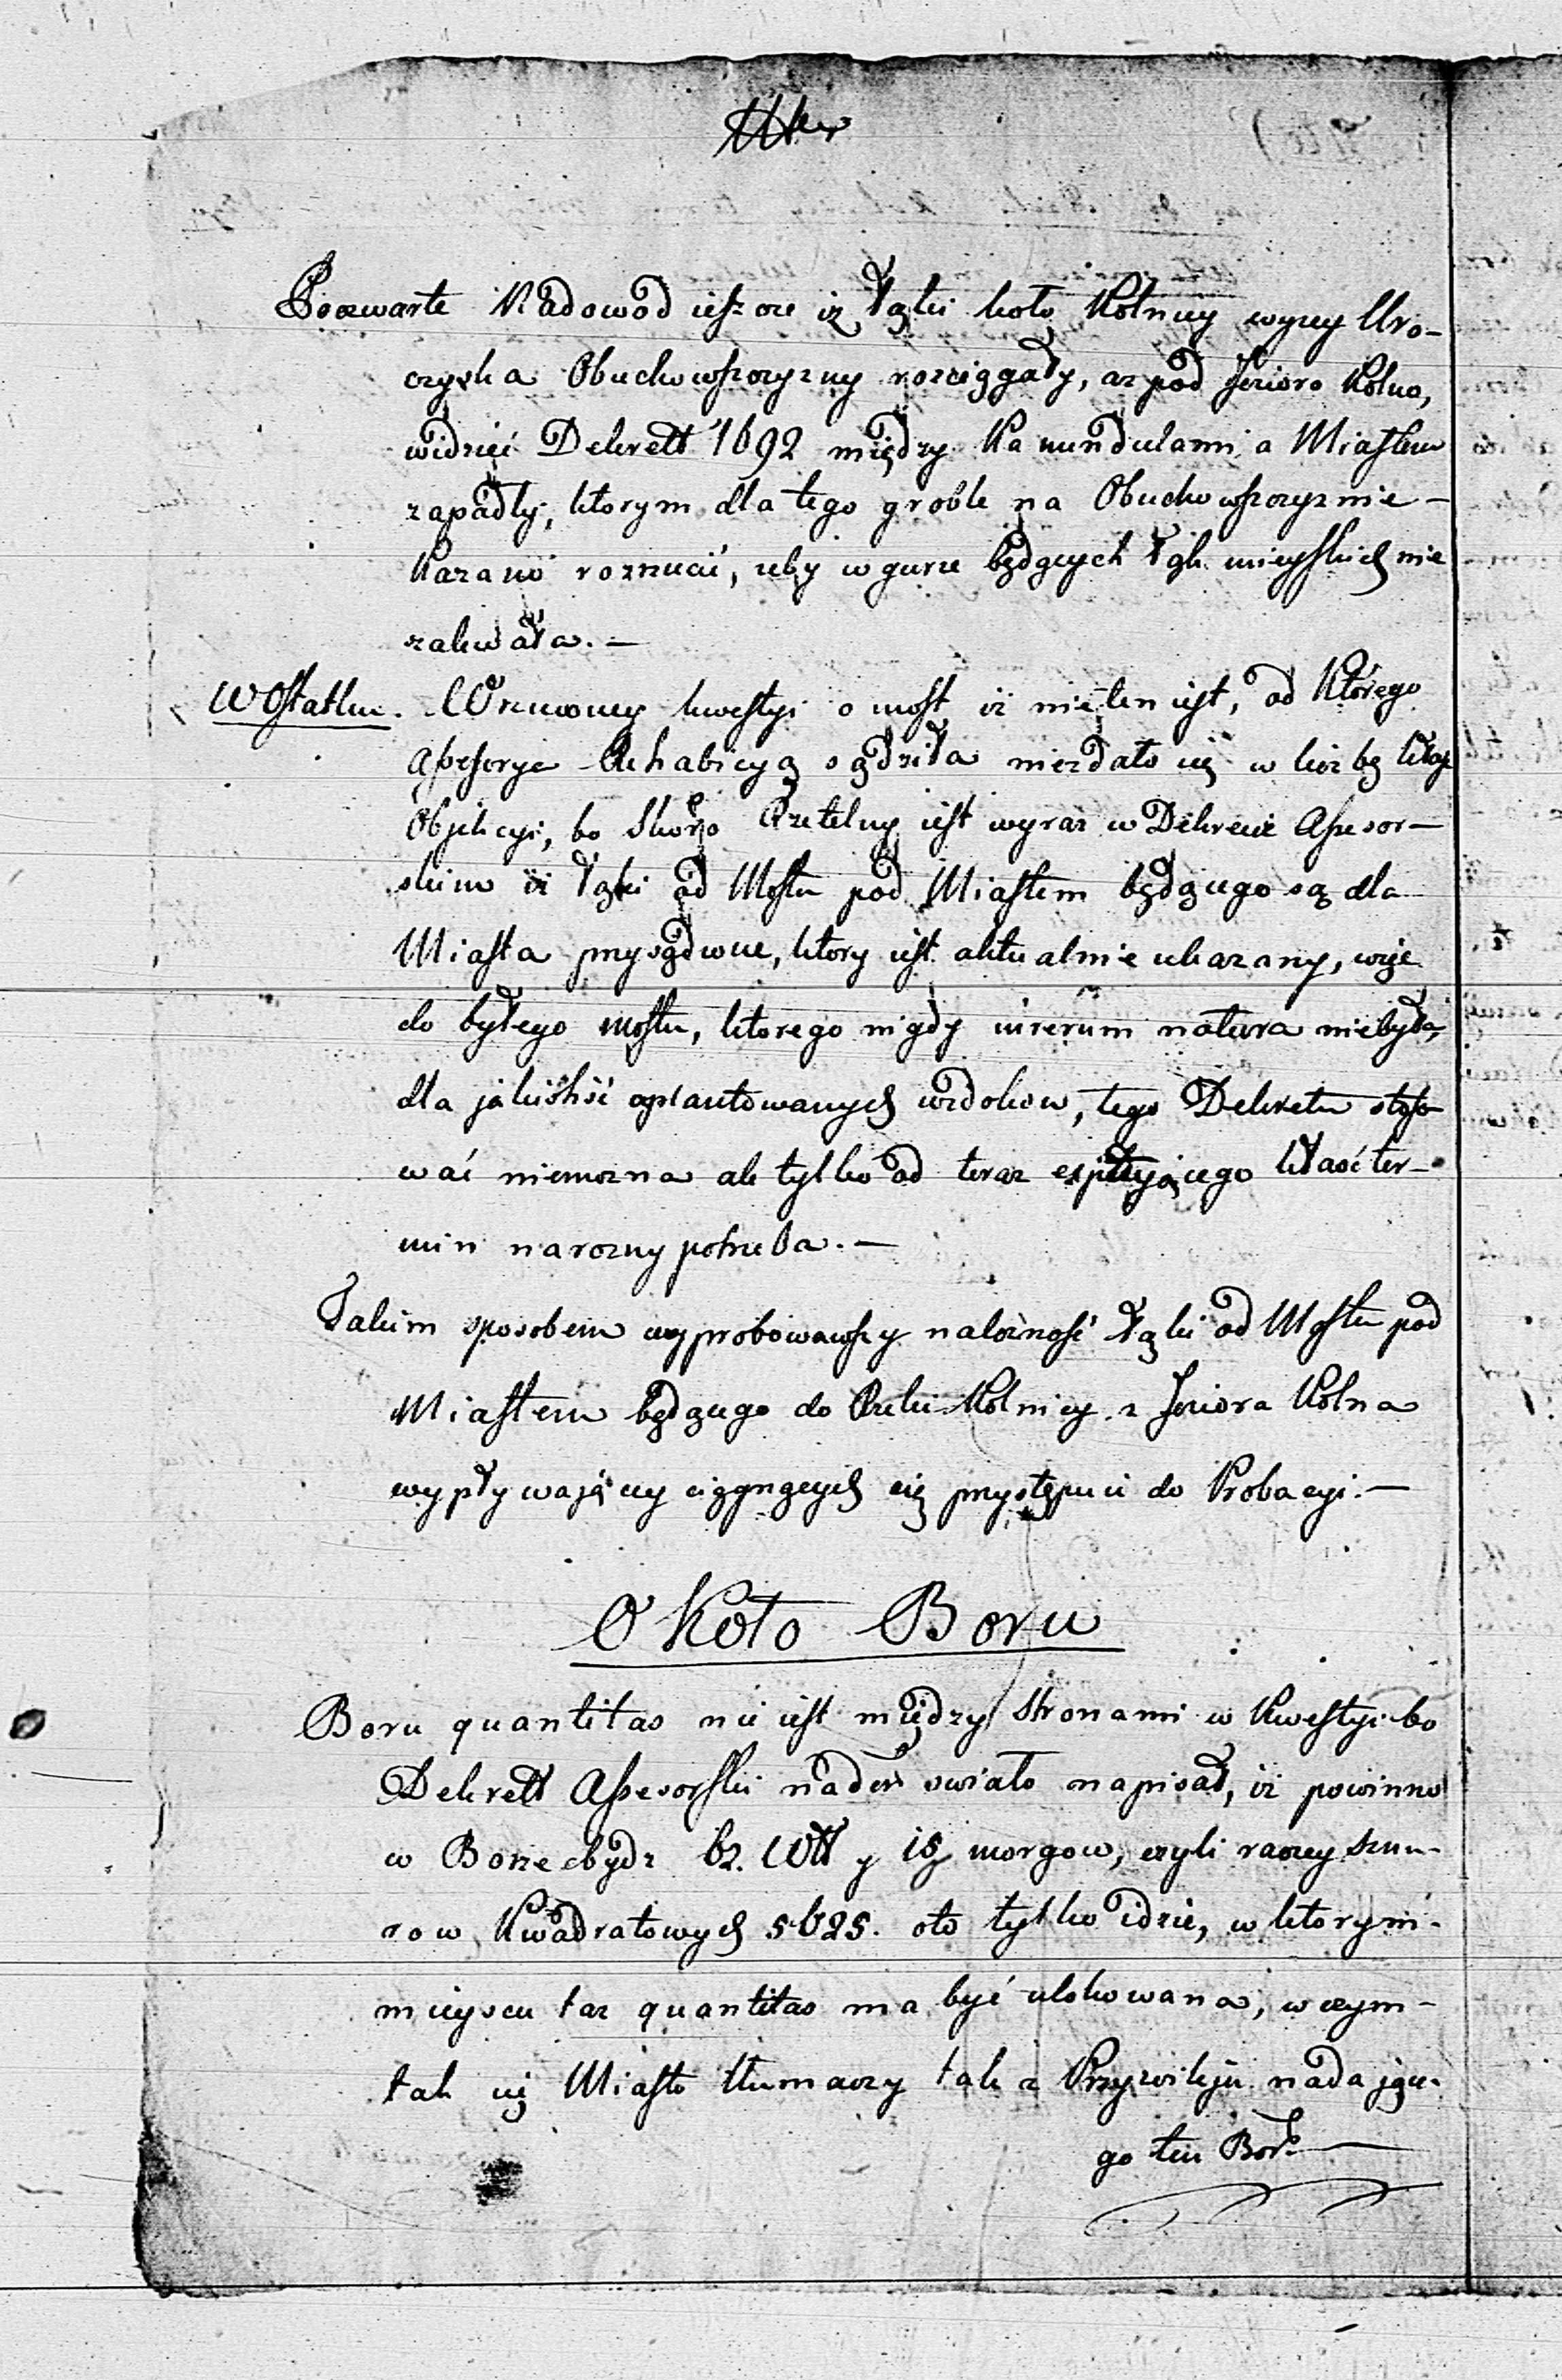 Poczwarte Nadowod ieszcze iż Łąki koło Kolnicy wyzey Uro-
czyska Obuchowszczyzny rozciągały, aż pod Jezioro Kolno,
widzieć Dekrett 1692 między Kamendulami a Miastem
zapadły, ktorym dla tego groble na Obuchowszczyznie -
Kazano rozrzucić, zeby w gurze będących Łąk mieyskich nie
zalewała. —
W Ostatku. Wzruszoney kwestyi o most iż nie ten iest, od Którego
Assesorya Rehabicyą sądziła niezdało się w liczbę kłaść
Objekcyi, bo skoro Rzetelny iest wyraz w Dekrecie Assesor-
skim iż Łąki od Mostu pod Miastem będącego są dla
Miasta przysądzone, ktory iest aktualnie ukazany, więc
do byłego mostu, ktorego nigdy in rerum natura niebyło,
dla jakichsić wzdokow, tego Dekretu stoso-
wać niemozna ale tylko od teraz exystującego kłaść ter-
min narozny potrzeba. —
Takim sposobem wyprobowawszy nalozność Łąki od Mostu pod
Miastem będącego do Rzeki Kolnicy z Jeziora Kolna
wypływającey ciągnących się przystępuie do Probacyi. —
Okoto Boru
Boru quantitas nie iest między Stronami w Kwestyi bo
Dekrett Assesorski nader swiało napisał, iż powinno
w Borze bydz 62. Włł y 15 morgow, czyli raczey sznu-
row Kwadratowych 5625. oto tylko idzie, w ktorym-
mieyscu taz quantitas ma być ulokowana, w czym-
tak się Miasto tłumaczy tak z Przywileju nadające-
go ten Bor. —